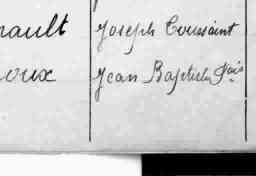 nault Joseph Toussaint
oux Jean Baptiste fois